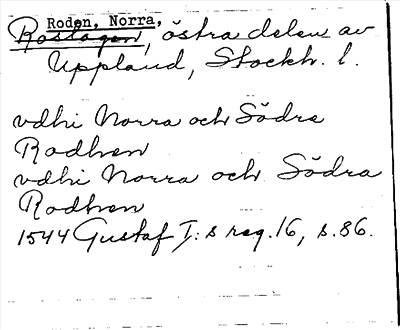 Roden, Norra,
Roslagen, östra delen av
Uppland, Stockh. l.
vdhi Norra och Södra
Rodhen
vdhi Norra och Södra
Rodhen
1544 Gustaf I:s reg. 16, s. 86.